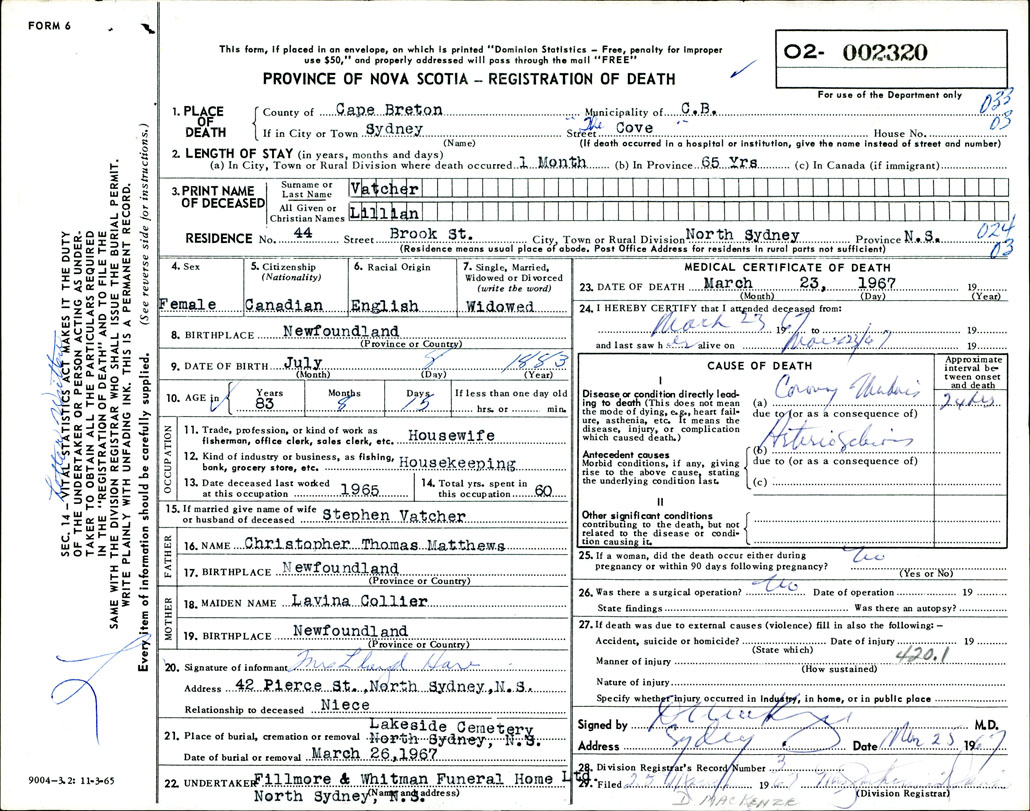 FORM 6
This form, if placed in an envelope, on which is printed "Dominion Statistics – Free, penalty for improper
use $50," and properly addressed will pass through the mail "FREE"
PROVINCE OF NOVA SCOTIA – REGISTRATION OF DEATH
O2- 002320
For use of the Department only
033
03
1. PLACE OF DEATH
County of Cape Breton Municipality of C.B.
If in City or Town Sydney Street "The Cove" House No.
(Name) (If death occurred in a hospital or institution, give the name instead of street and number)
2. LENGTH OF STAY (in years, months and days)
(a) In City, Town or Rural Division where death occurred 1 Month (b) In Province 65 Yrs (c) In Canada (if immigrant)
3. PRINT NAME OF DECEASED
Surname or Last Name Vatcher
All Given or Christian Names Lillian
RESIDENCE No. 44 Street Brook St. City, Town or Rural Division North Sydney Province N.S.
(Residence means usual place of abode. Post Office Address for residents in rural parts not sufficient)
024
03
4. Sex
Female
5. Citizenship
(Nationality)
Canadian
6. Racial Origin
English
7. Single, Married,
Widowed or Divorced
(write the word)
Widowed
8. BIRTHPLACE Newfoundland
(Province or Country)
9. DATE OF BIRTH July 8 1883
(Month) (Day) (Year)
10. AGE in Years 83 Months 8 Days 15 If less than one day old
hrs. or min.
OCCUPATION
11. Trade, profession, or kind of work as
fisherman, office clerk, sales clerk, etc. Housewife
12. Kind of industry or business, as fishing,
bank, grocery store, etc. Housekeeping
13. Date deceased last worked
at this occupation 1965
14. Total yrs. spent in
this occupation 60
15. If married give name of wife
or husband of deceased Stephen Vatcher
FATHER
16. NAME Christopher Thomas Matthews
17. BIRTHPLACE Newfoundland
(Province or Country)
MOTHER
18. MAIDEN NAME Lavina Collier
19. BIRTHPLACE Newfoundland
(Province or Country)
20. Signature of informant Mrs Lloyd Hare
Address 42 Pierce St., North Sydney, N.S.
Relationship to deceased Niece
21. Place of burial, cremation or removal Lakeside Cemetery
North Sydney, N.S.
Date of burial or removal March 26, 1967
22. UNDERTAKER Fillmore & Whitman Funeral Home Ltd.
(Name and address)
North Sydney, N.S.
MEDICAL CERTIFICATE OF DEATH
23. DATE OF DEATH March 23, 1967 19
(Month) (Day) (Year)
24. I HEREBY CERTIFY that I attended deceased from:
March 23 1967 to 19
and last saw her alive on Mar 23/67 19
CAUSE OF DEATH
Approximate interval between onset and death
I
Disease or condition directly leading to death (This does not mean the mode of dying, e.g., heart failure, asthenia, etc. It means the disease, injury, or complication which caused death.)
(a) Coronary
24 hrs
due to (or as a consequence of)
Antecedent causes
Morbid conditions, if any, giving rise to the above cause, stating the underlying condition last.
(b) Arteriosclerosis
due to (or as a consequence of)
(c)
II
Other significant conditions
contributing to the death, but not related to the disease or condition causing it.
25. If a woman, did the death occur either during
pregnancy or within 90 days following pregnancy? No
(Yes or No)
26. Was there a surgical operation? No Date of operation 19
State findings Was there an autopsy?
27. If death was due to external causes (violence) fill in also the following: –
Accident, suicide or homicide? Date of injury 19
(State which)
420.1
Manner of injury
(How sustained)
Nature of injury
Specify whether injury occurred in Industry, in home, or in public place
Signed by M.D.
Address Sydney Date Mar 23 1967
28. Division Registrar's Record Number 3
29. Filed 25 1967
(Division Registrar)
D MACKENZIE
SEC. 14 – VITAL STATISTICS ACT MAKES IT THE DUTY
OF THE UNDERTAKER OR PERSON ACTING AS UNDER-
TAKER TO OBTAIN ALL THE PARTICULARS REQUIRED
IN THE "REGISTRATION OF DEATH" AND TO FILE THE
SAME WITH THE DIVISION REGISTRAR WHO SHALL ISSUE THE BURIAL PERMIT.
WRITE PLAINLY WITH UNFADING INK. THIS IS A PERMANENT RECORD.
Every item of information should be carefully supplied. (See reverse side for instructions.)
9004-3.2: 11-3-65